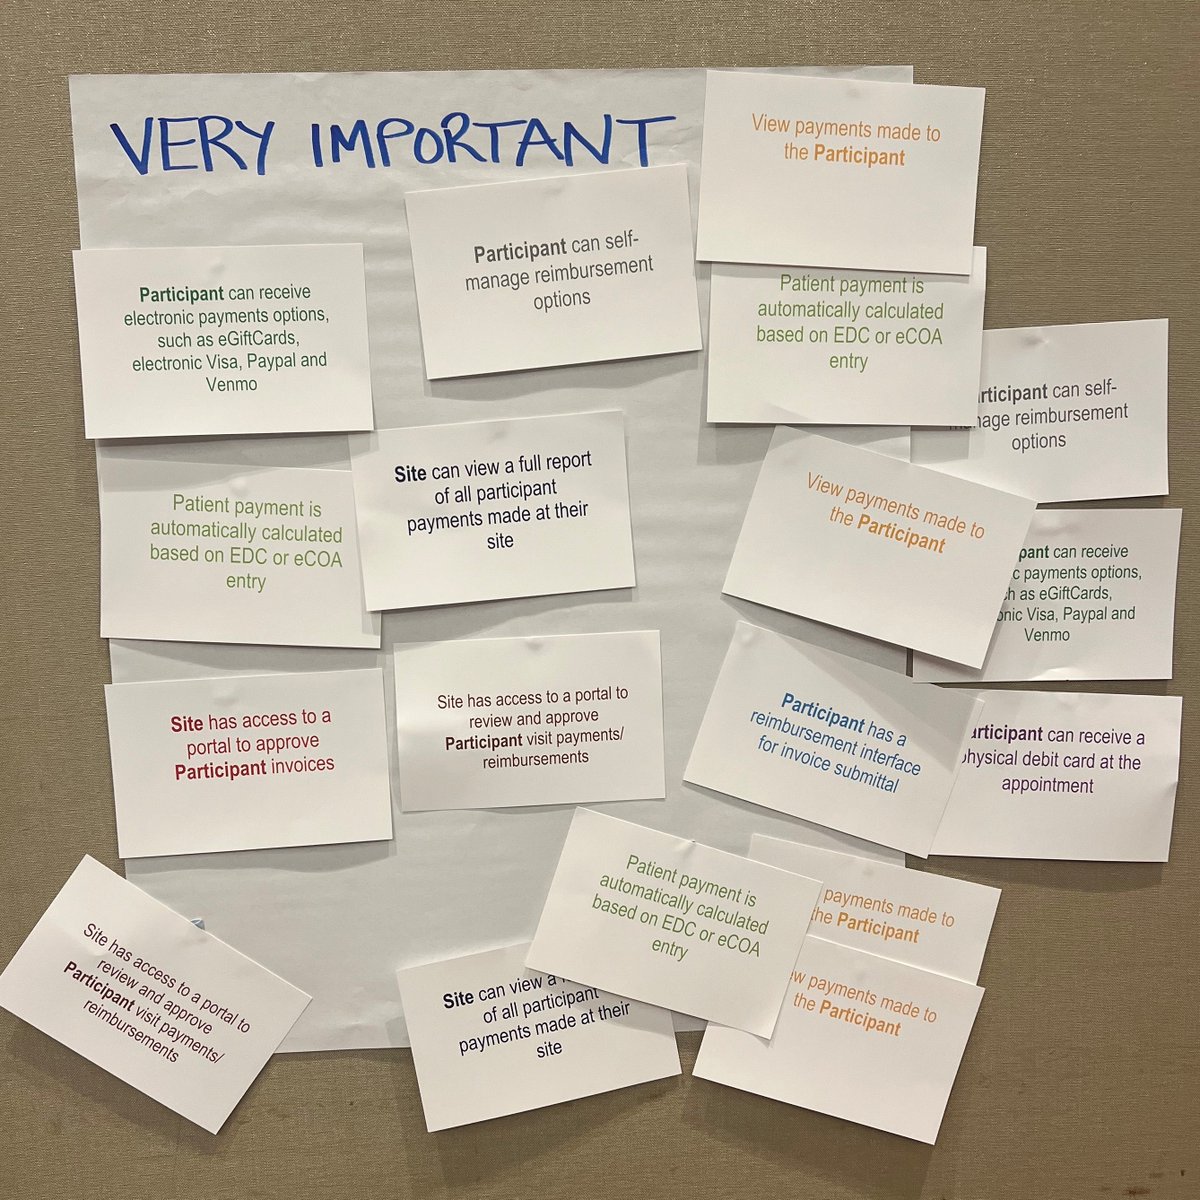 VERY IMPORTANT
View payments made to
the Participant
Participant can self-
manage reimbursement
options
Participant can receive
electronic payments options,
such as eGiftCards,
electronic Visa, Paypal and
Venmo
Patient payment is
automatically calculated
based on EDC or eCOA
entry
rticipant can self-
nage reimbursement
options
Site can view a full report
of all participant
payments made at their
site
Patient payment is
automatically calculated
based on EDC or eCOA
entry
View payments made to
the Participant
pant can receive
c payments options,
h as eGiftCards,
onic Visa, Paypal and
Venmo
Site has access to a
portal to approve
Participant invoices
Site has access to a portal to
review and approve
Participant visit payments/
reimbursements
Participant has a
reimbursement interface
for invoice submittal
articipant can receive a
physical debit card at the
appointment
Patient payment is
automatically calculated
based on EDC or eCOA
entry
payments made to
the Participant
Site has access to a portal to
review and approve
Participant visit payments/
reimbursements
Site can view a
of all participant
payments made at their
site
ew payments made to
the Participant